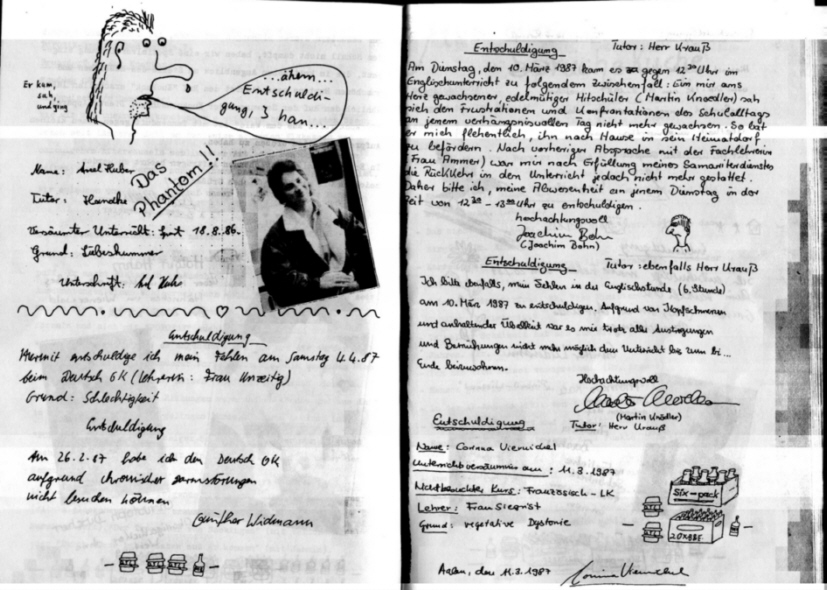 Er kam,
sah,
und ging
...ähem...
Entschuldi-
gung! 3 han...
Das
Phantom!!
Name: Axel Huber
Tutor: Hundke
Versäumter Unterricht: seit 18.8.86.
Grund: Liebeskummer
Unterschrift:
Entschuldigung
Hiermit entschuldige ich mein Fehlen am Samstag 4.4.87
beim Deutsch GK (Lehrerin: Frau Unzeitig)
Grund: Schlechtigkeit
Entschuldigung
Am 26.2.87 habe ich den Deutsch GK
aufgrund chronischer Darmstörungen
nicht besuchen können
Günther Widmann
Entschuldigung Tutor: Herr Krauß
Am Dienstag, den 10. März 1987 kam es gegen 12³⁰ Uhr im
Englischunterricht zu folgendem Zwischenfall: Ein mir ans
Herz gewachsener, edelmütiger Mitschüler (Martin Knoedler) sah
sich den Frustrationen und Konfrontationen des Schulalltags
an jenem verhängnisvollen Tag nicht mehr gewachsen. So bat
er mich flehentlich, ihn nach Hause in sein Heimatdorf
zu befördern. Nach vorheriger Absprache mit der Fachlehrerin
(Frau Ammer) war mir nach Erfüllung meines Samariterdienstes
die Rückkehr in den Unterricht jedoch nicht mehr gestattet.
Daher bitte ich, meine Abwesenheit an jenem Dienstag in der
Zeit von 12³⁰ - 13⁰⁰ Uhr zu entschuldigen.
hochachtungsvoll
Joachim Bohn
(Joachim Bohn)
Entschuldigung Tutor: ebenfalls Herr Krauß
Ich bitte ebenfalls, mein Fehlen in der Englischstunde (6. Stunde)
am 10. März 1987 zu entschuldigen. Aufgrund von Kopfschmerzen
und anhaltender Übelkeit war es mir trotz aller Anstrengungen
und Bemühungen nicht mehr möglich dem Unterricht bis zum bi...
Ende beizuwohnen.
Hochachtungsvoll
(Martin Knödler)
Tutor: Herr Krauß
Entschuldigung
Name: Corinna Viernickel
Unterrichtsversäumnis am: 11.3.1987
Nichtbesuchter Kurs: Französisch-LK
Lehrer: Frau Siegrist
Grund: vegetative Dystonie
Six-pack
Aalen, den 11.3.1987